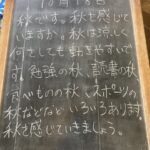 10月18日
秋です。秋を感じて
いますか。秋は涼しく
何をしても動きやすいで
す。勉強の秋、読書の秋
食べものの秋、スポーツの
秋などなどいろいろあります。
秋を感じていきましょう。